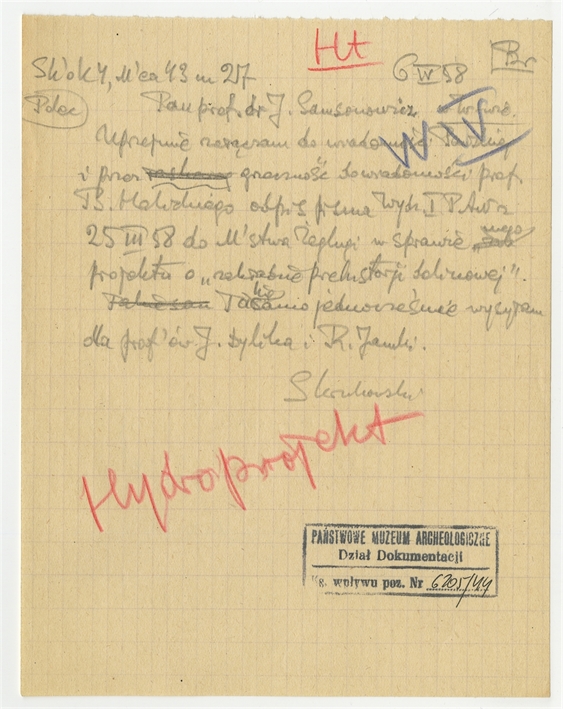 Ht
6 IV 58
Br
Sk'ok 4, M'ca 43 m 257
Polec
Pan prof. dr J. Samsonowicz w W'wie.
W IV
Uprzejmie załączam do wiadomości
i przez grzeczność do wiadomości prof.
B. Halickiego odpis pisma Wydz. I PAW z
25 III 58 do M'stwa Żeglugi w sprawie mego
projektu o „zakresie prehistorji dolinowej".
Takie samo jednocześnie wysyłam
dla prof'ów J. Dylika i R. Jamki.
Hydroprojekt
PAŃSTWOWE MUZEUM ARCHEOLOGICZNE
Dział Dokumentacji
Ks. wpływu poz. Nr 6205/44